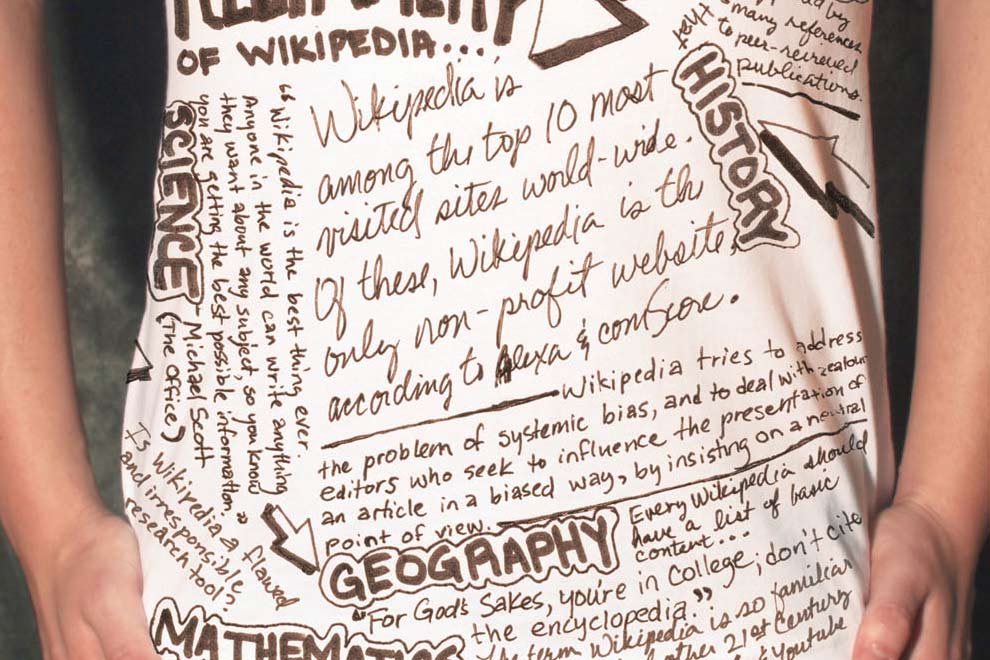 OF WIKIPEDIA...
many references
to peer-reviewed
publications.
HISTORY
Wikipedia is
among the top 10 most
visited sites world-wide.
Of these, Wikipedia is th
only non-profit website,
according to Alexa & comScore.
SCIENCE
"Wikipedia is the best thing ever.
Anyone in the world can write anything
they want about any subject so you know
you are getting the best possible information."
- Michael Scott
(The Office)
Wikipedia tries to address
the problem of systemic bias, and to deal with zealous
editors who seek to influence the presentation of
an article in a biased way, by insisting on a neutral
point of view.
Is Wikipedia a flawed
and irresponsible
research tool?
GEOGRAPHY
Every Wikipedia should
have a list of basic
content...
"For God's Sakes, you're in College; don't cite
the encyclopedia."
MATHEMATICS
the term Wikipedia is so familiar
other 21st Century
& Youtube